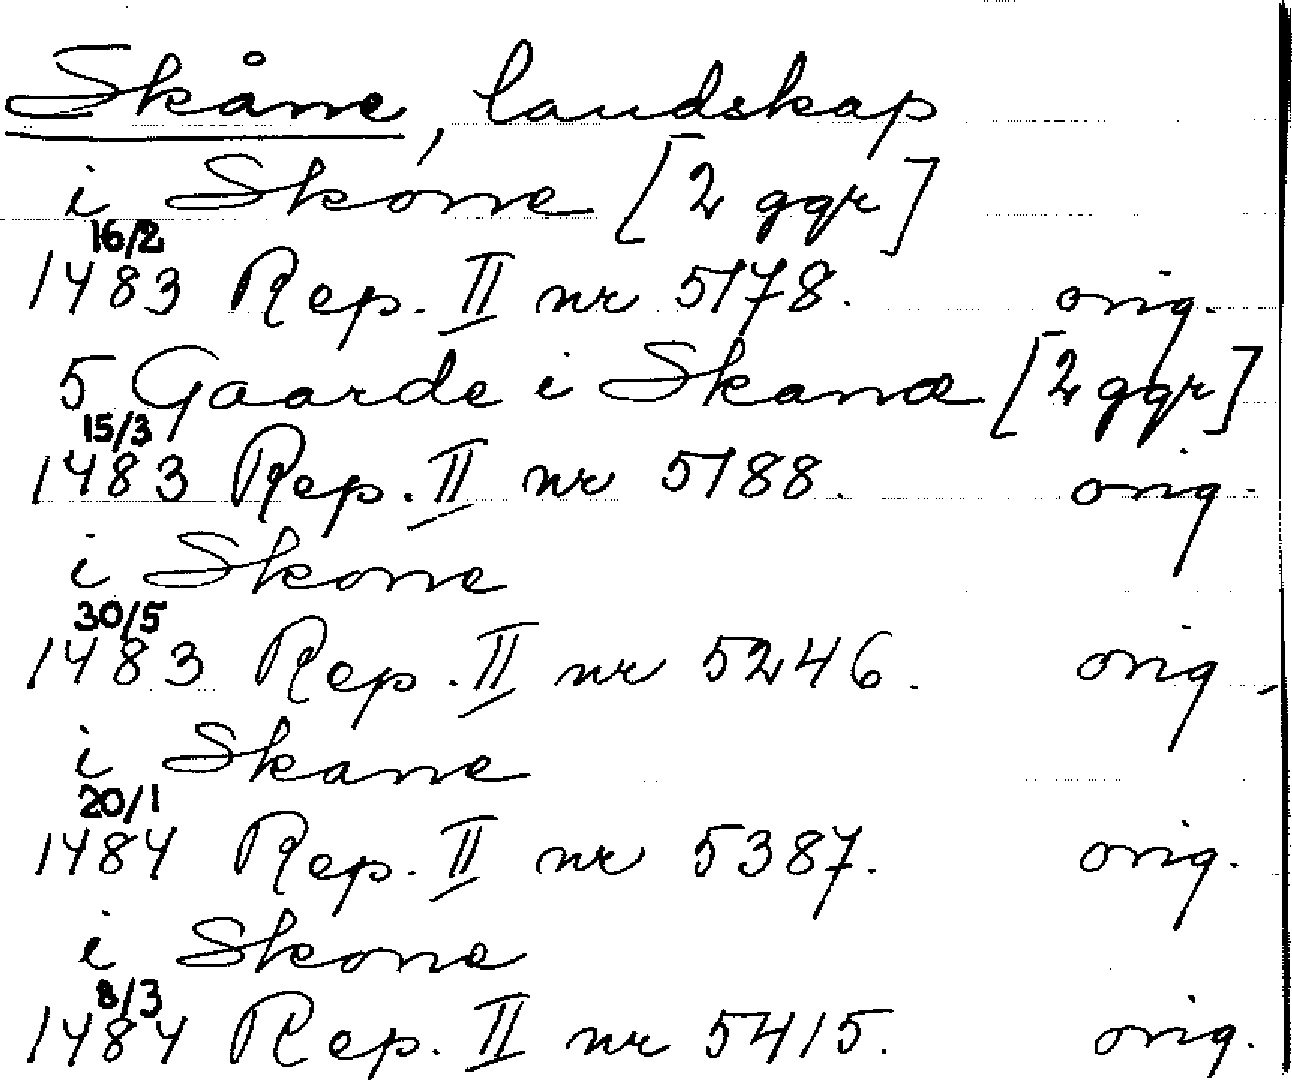 Skåne, landskap
i Skone [2 ggr]
16/2
1483 Rep. II nr 5178. orig.
5 Gaarde i Skanæ [2 ggr]
15/3
1483 Rep. II nr 5188. orig.
i Skone
30/5
1483 Rep. II nr 5246. orig.
i Skane
20/1
1484 Rep. II nr 5387. orig.
i Skone
8/3
1484 Rep. II nr 5415. orig.